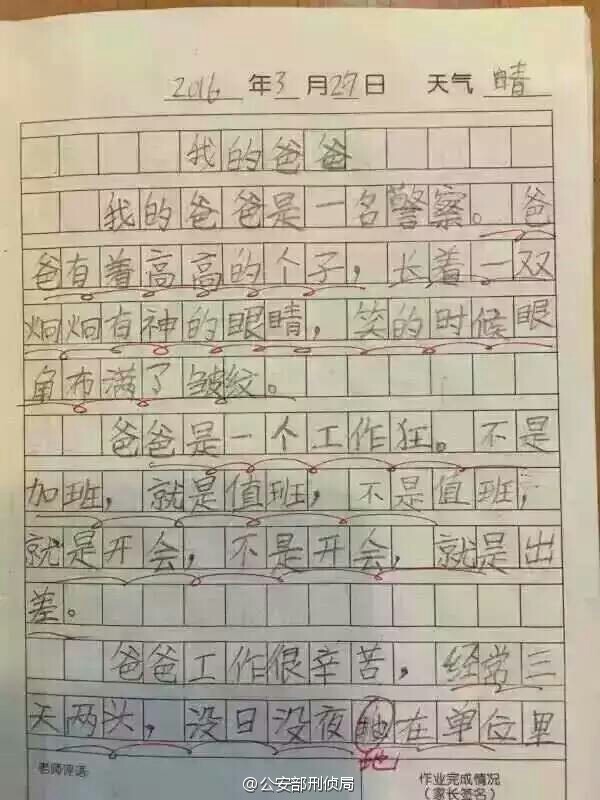 2016 年 3 月 27 日 天气 晴
我的爸爸
我的爸爸是一名警察。爸
爸有着高高的个子，长着一双
炯炯有神的眼睛，笑的时候眼
角布满了皱纹。
爸爸是一个工作狂。不是
加班，就是值班，不是值班，
就是开会，不是开会，就是出
差。
爸爸工作很辛苦，经常三
天两头，没日没夜地在单位里
地
老师评语
作业完成情况
（家长签名）
@公安部刑侦局